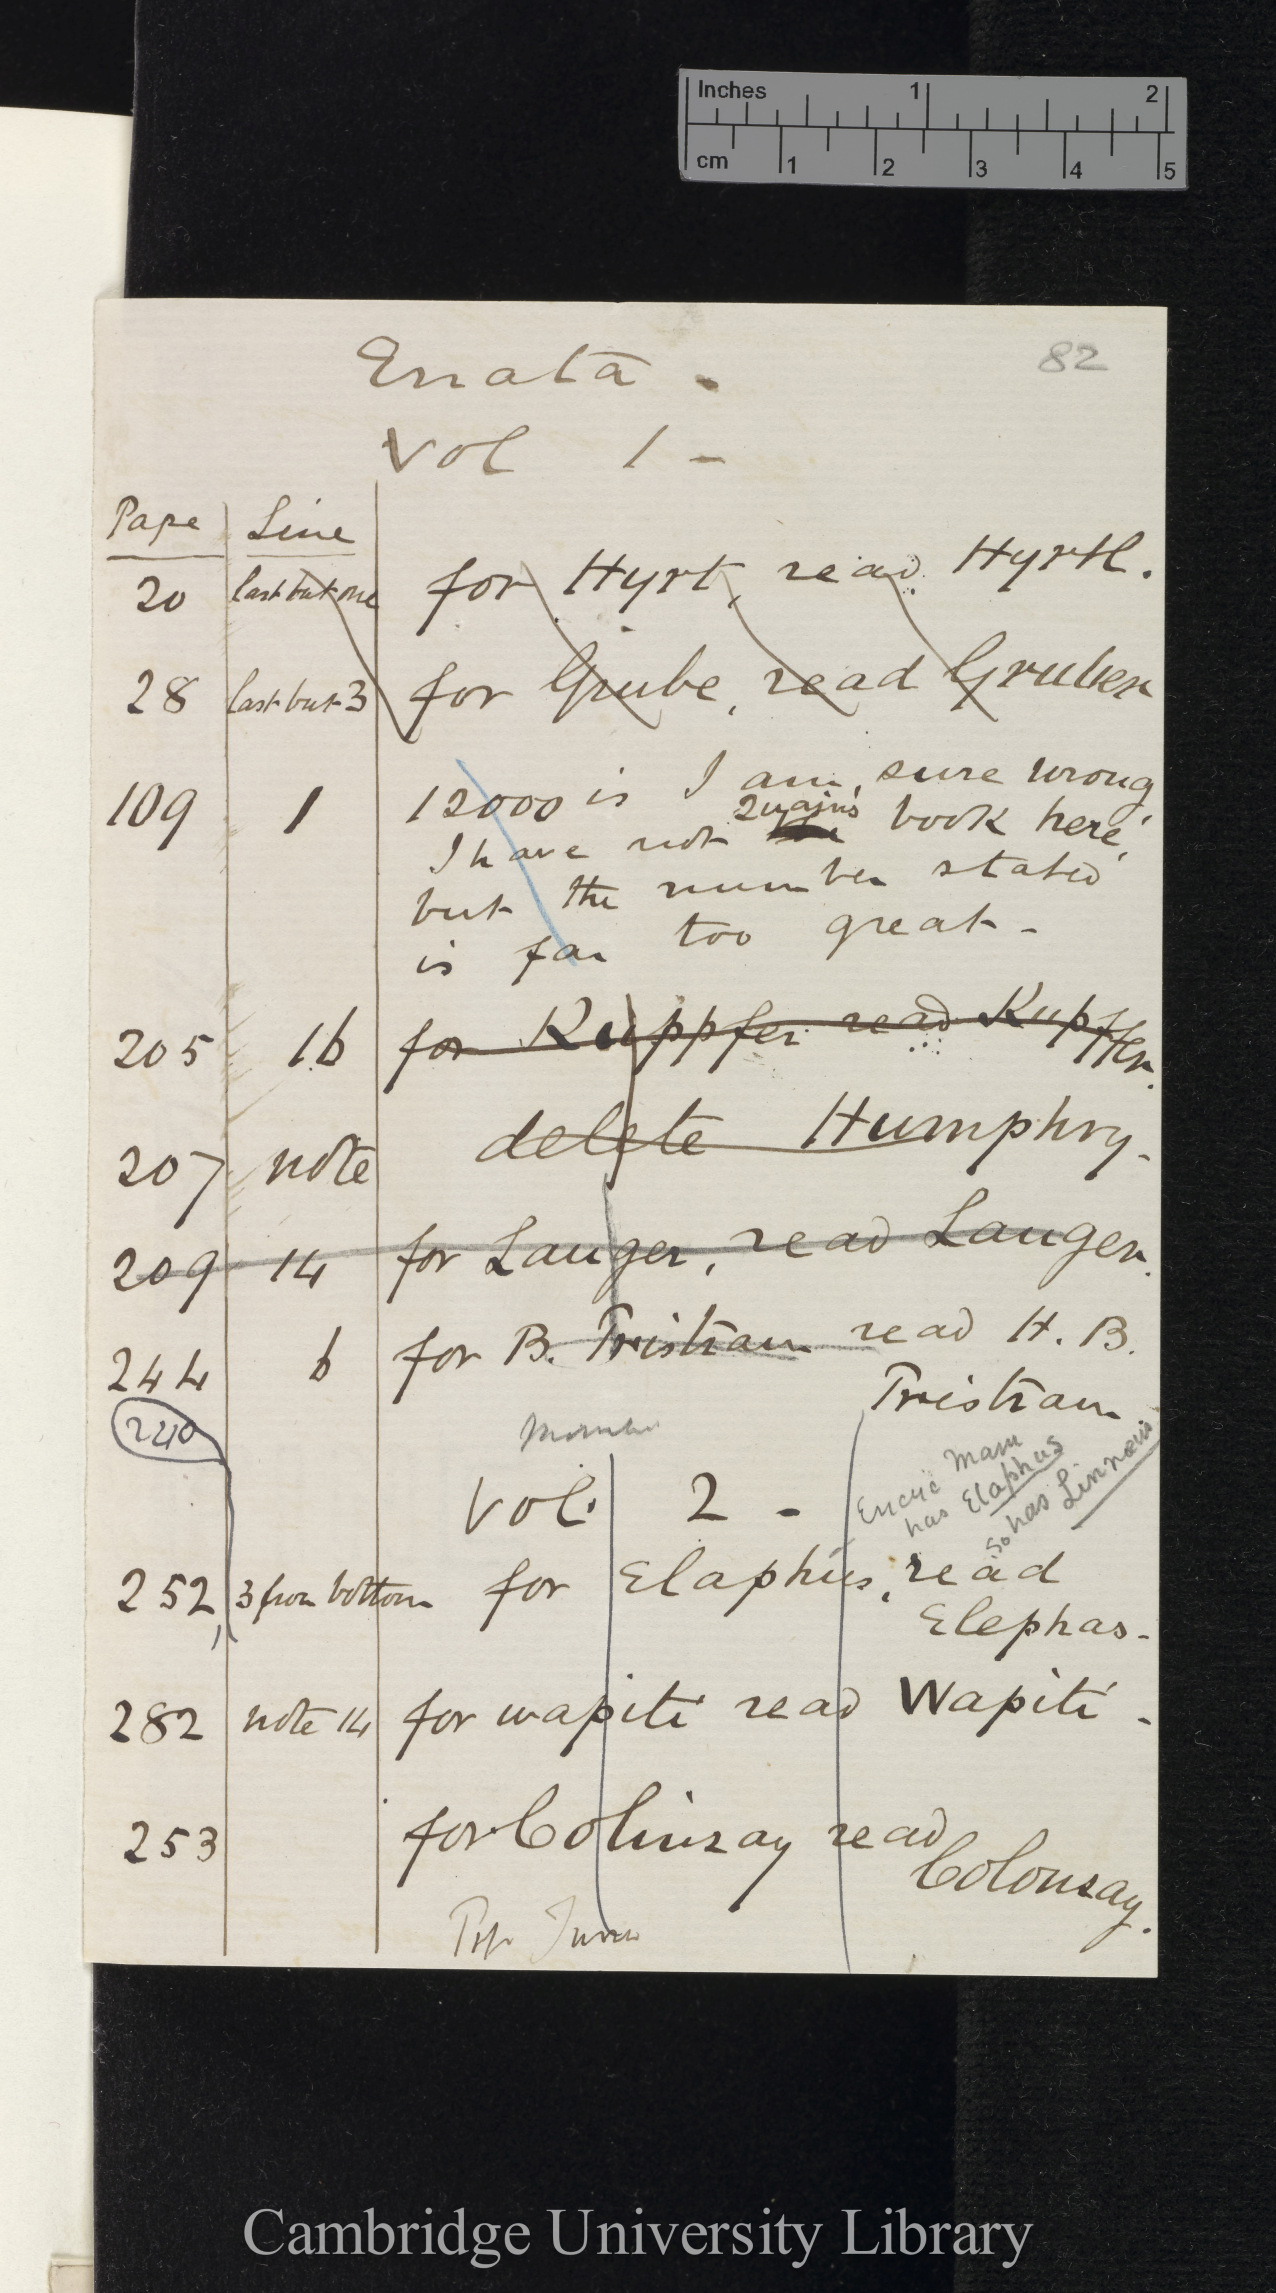 Inches 1 2
cm 1 2 3 4 5
82
Errata.
Vol 1-
Page Line
20 last but one for Hyrt, read Hyrtl.
28 last but 3 for Grube, read Gruber
109 1 12000 is I am sure wrong
I have not Quain's book here,
but the number stated
is far too great-
205 16 for Kuppfer read Kupffer.
207 note delete Humphry.
209 14 for Lauger, read Langer.
244 6 for B. Tristram read H. B.
Tristram
240
Vol. 2 -
Mam
has Elaphus
so has Linnaeus
252, 3 from bottom for Elaphus, read
Elephas-
282 note 14 for wapiti read Wapiti-
253 for Colinsay read
Colonsay.
Cambridge University Library